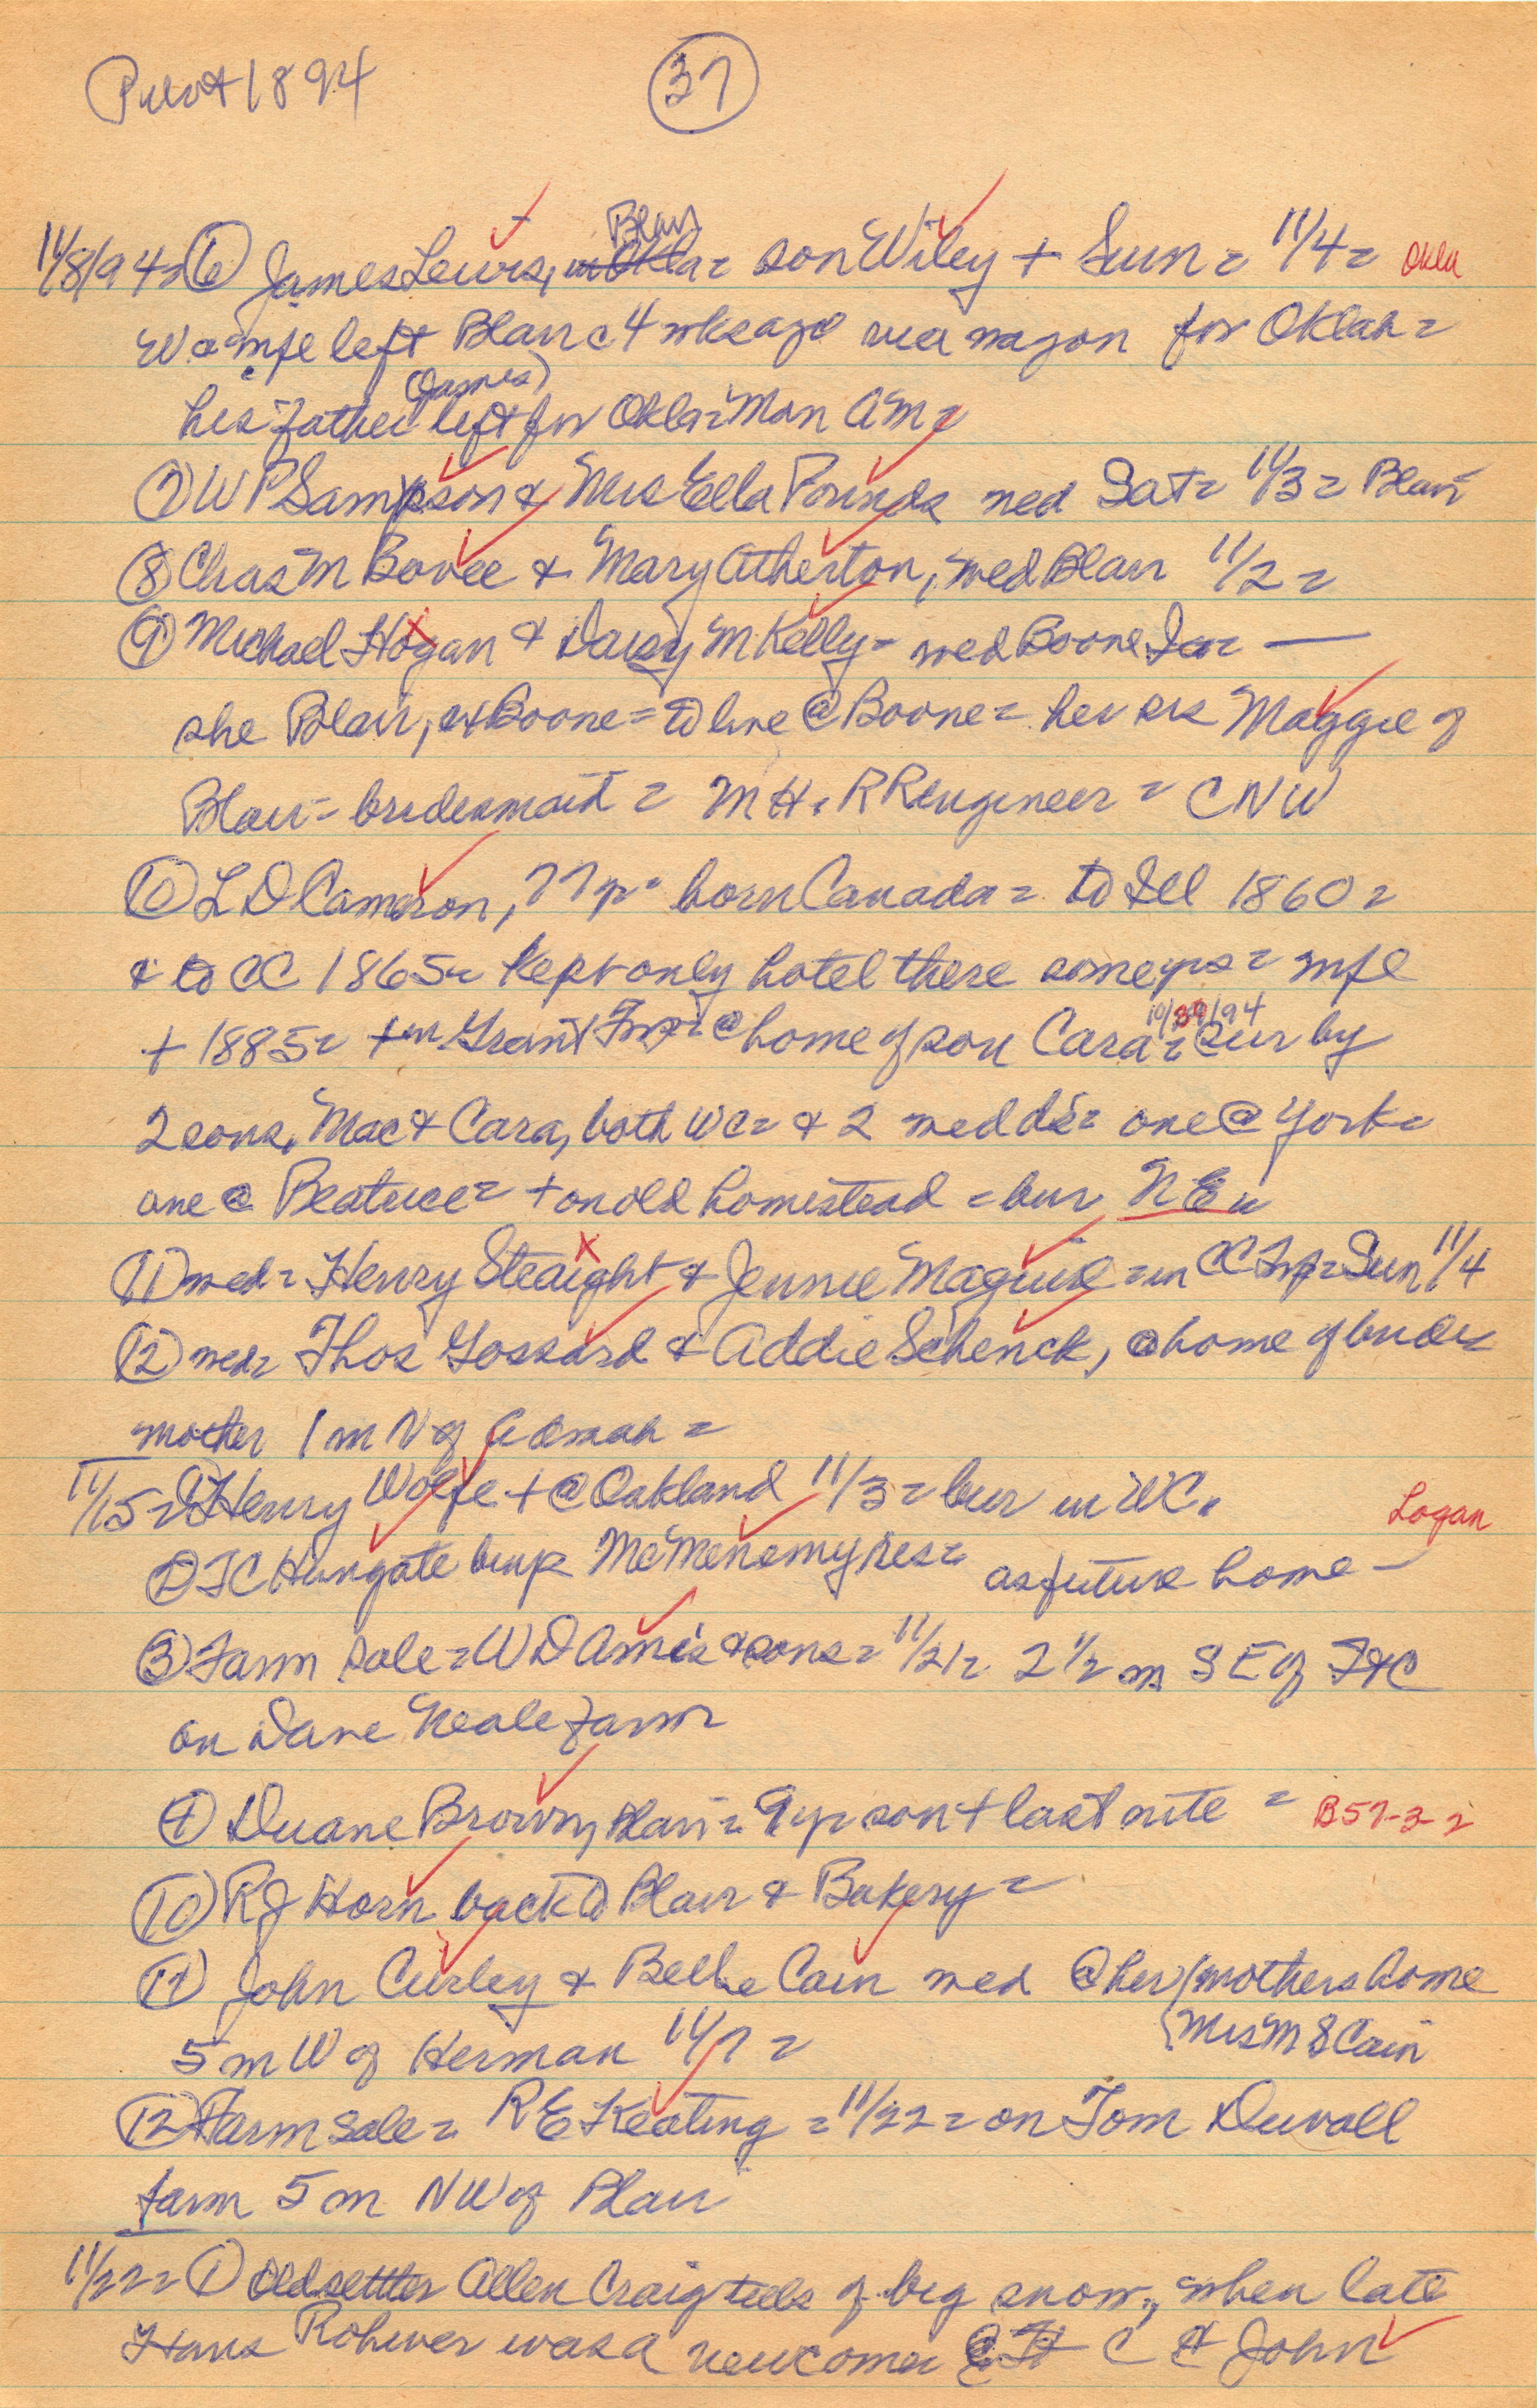 Pilot 1894
37
Blair
11/8/94= (6) James Lewis, in Okla= son Wiley + Sun= 11/4= Okla
W & wife left Blair c 4 wks ago via wagon for Oklah=
(James)
his father left for Okla= Mon AM=
(7) WP Sampson & Mrs Ella Pounds med Sat= 11/3= Blair
(8) Chas M Bovee & Mary Atherton, med Blair 11/2=
(9) Michael Hogan & Daisy M Kelly= med Boone Ia= —
she Blair, ex Boone= to live @ Boone= her sis Maggie of
Blair= bridesmaid= MH= RR engineer= CNW
(10) L D Cameron, 77 yr= born Canada= to Ill 1860=
& to CC 1865= kept only hotel there some yrs= wife
10/30/94
+ 1885= + in Grant Twp= @ home of son Cara= sur by
2 sons, Mac & Cara, both WC= & 2 med ds= one @ York=
one @ Beatrice= + on old homestead = bur NE=
(11) med= Henry Straight & Jennie Maguire = in CC Twp= Sun 11/4
(12) med= Thos Gossard & Addie Schenck, @ home of brides
mother 1 m N of Admah=
11/15= (1) Henry Wolfe + @ Oakland 11/3= bur in WC.
Logan
(2) TC Hungate buys McMenemy res= as future home —
(3) Farm sale= WD Amis & sons= 11/21= 2 1/2 m SE of Ft C
on Dave Neale farm
(4) Duane Brown, Blair= 9 yr son + last nite = B57-3-2
(10) RJ Horn back to Blair & Bakery=
(11) John Curley & Belle Cain med @ her mothers home
(Mrs M S Cain
5 m W of Herman 11/7=
(12) Farm sale= RE Keating = 11/22= on Tom Duvall
farm 5 m NW of Blair
11/22= (1) Old settler Allen Craig tells of big snow, when late
Hans Rohwer was a newcomer @ Ft C & John